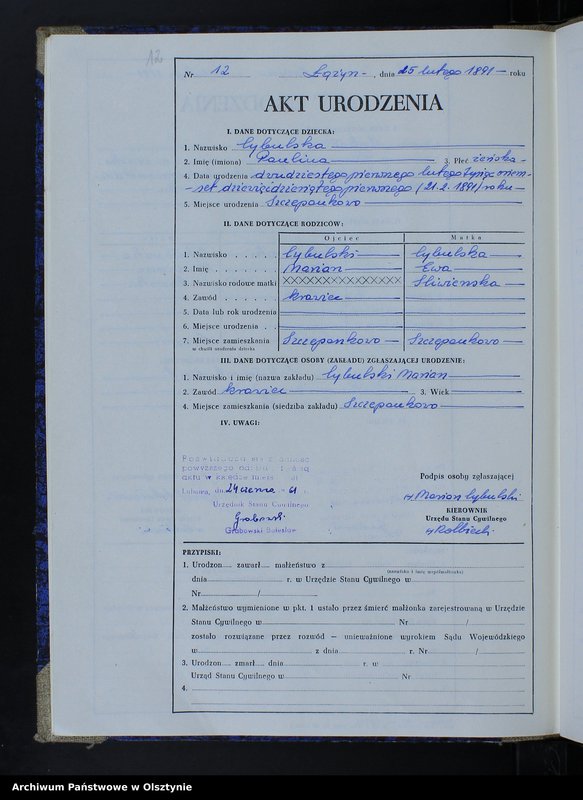 12
Nr 12 Łążyn - , dnia 25 lutego 1891 — roku
AKT URODZENIA
I. DANE DOTYCZĄCE DZIECKA:
1. Nazwisko Cybulska
2. Imię (imiona) Paulina 3. Płeć żeńska -
4. Data urodzenia dwudziestego pierwszego lutego tysiąc osiem-
-set dziewięćdziesiątego pierwszego (21.2.1891) roku —
5. Miejsce urodzenia Szczepankowo
II. DANE DOTYCZĄCE RODZICÓW:
Ojciec Matka
1. Nazwisko Cybulski Cybulska
2. Imię Marian Ewa
3. Nazwisko rodowe matki XXXXXXXXXXXX Śliwieńska
4. Zawód krawiec
5. Data lub rok urodzenia
6. Miejsce urodzenia
7. Miejsce zamieszkania Szczepankowo Szczepankowo
w chwili urodzenia dziecka
III. DANE DOTYCZĄCE OSOBY (ZAKŁADU) ZGŁASZAJĄCEJ URODZENIE:
1. Nazwisko i imię (nazwa zakładu) Cybulski Marian
2. Zawód krawiec 3. Wiek
4. Miejsce zamieszkania (siedziba zakładu) Szczepankowo
IV. UWAGI:
Poświadcza się zgodność
powyższego odpisu z treścią
aktu w księdze
Lubawa, dn. 24 czerwca 61
Urzędnik Stanu Cywilnego
Grabowski
Grabowski Bolesław
Podpis osoby zgłaszającej
Marian Cybulski
KIEROWNIK
Urzędu Stanu Cywilnego
PRZYPISKI:
1. Urodzon.... zawarł.... małżeństwo z
(nazwisko i imię współmałżonka)
dnia r. w Urzędzie Stanu Cywilnego w
Nr /
2. Małżeństwo wymienione w pkt. 1 ustało przez śmierć małżonka zarejestrowaną w Urzędzie
Stanu Cywilnego w Nr /
zostało rozwiązane przez rozwód — unieważnione wyrokiem Sądu Wojewódzkiego
w z dnia r. Nr /
3. Urodzon.... zmarł.... dnia r. w
Urząd Stanu Cywilnego w Nr
4.
Archiwum Państwowe w Olsztynie